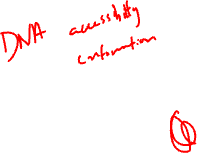 DNA accessibility
conformation